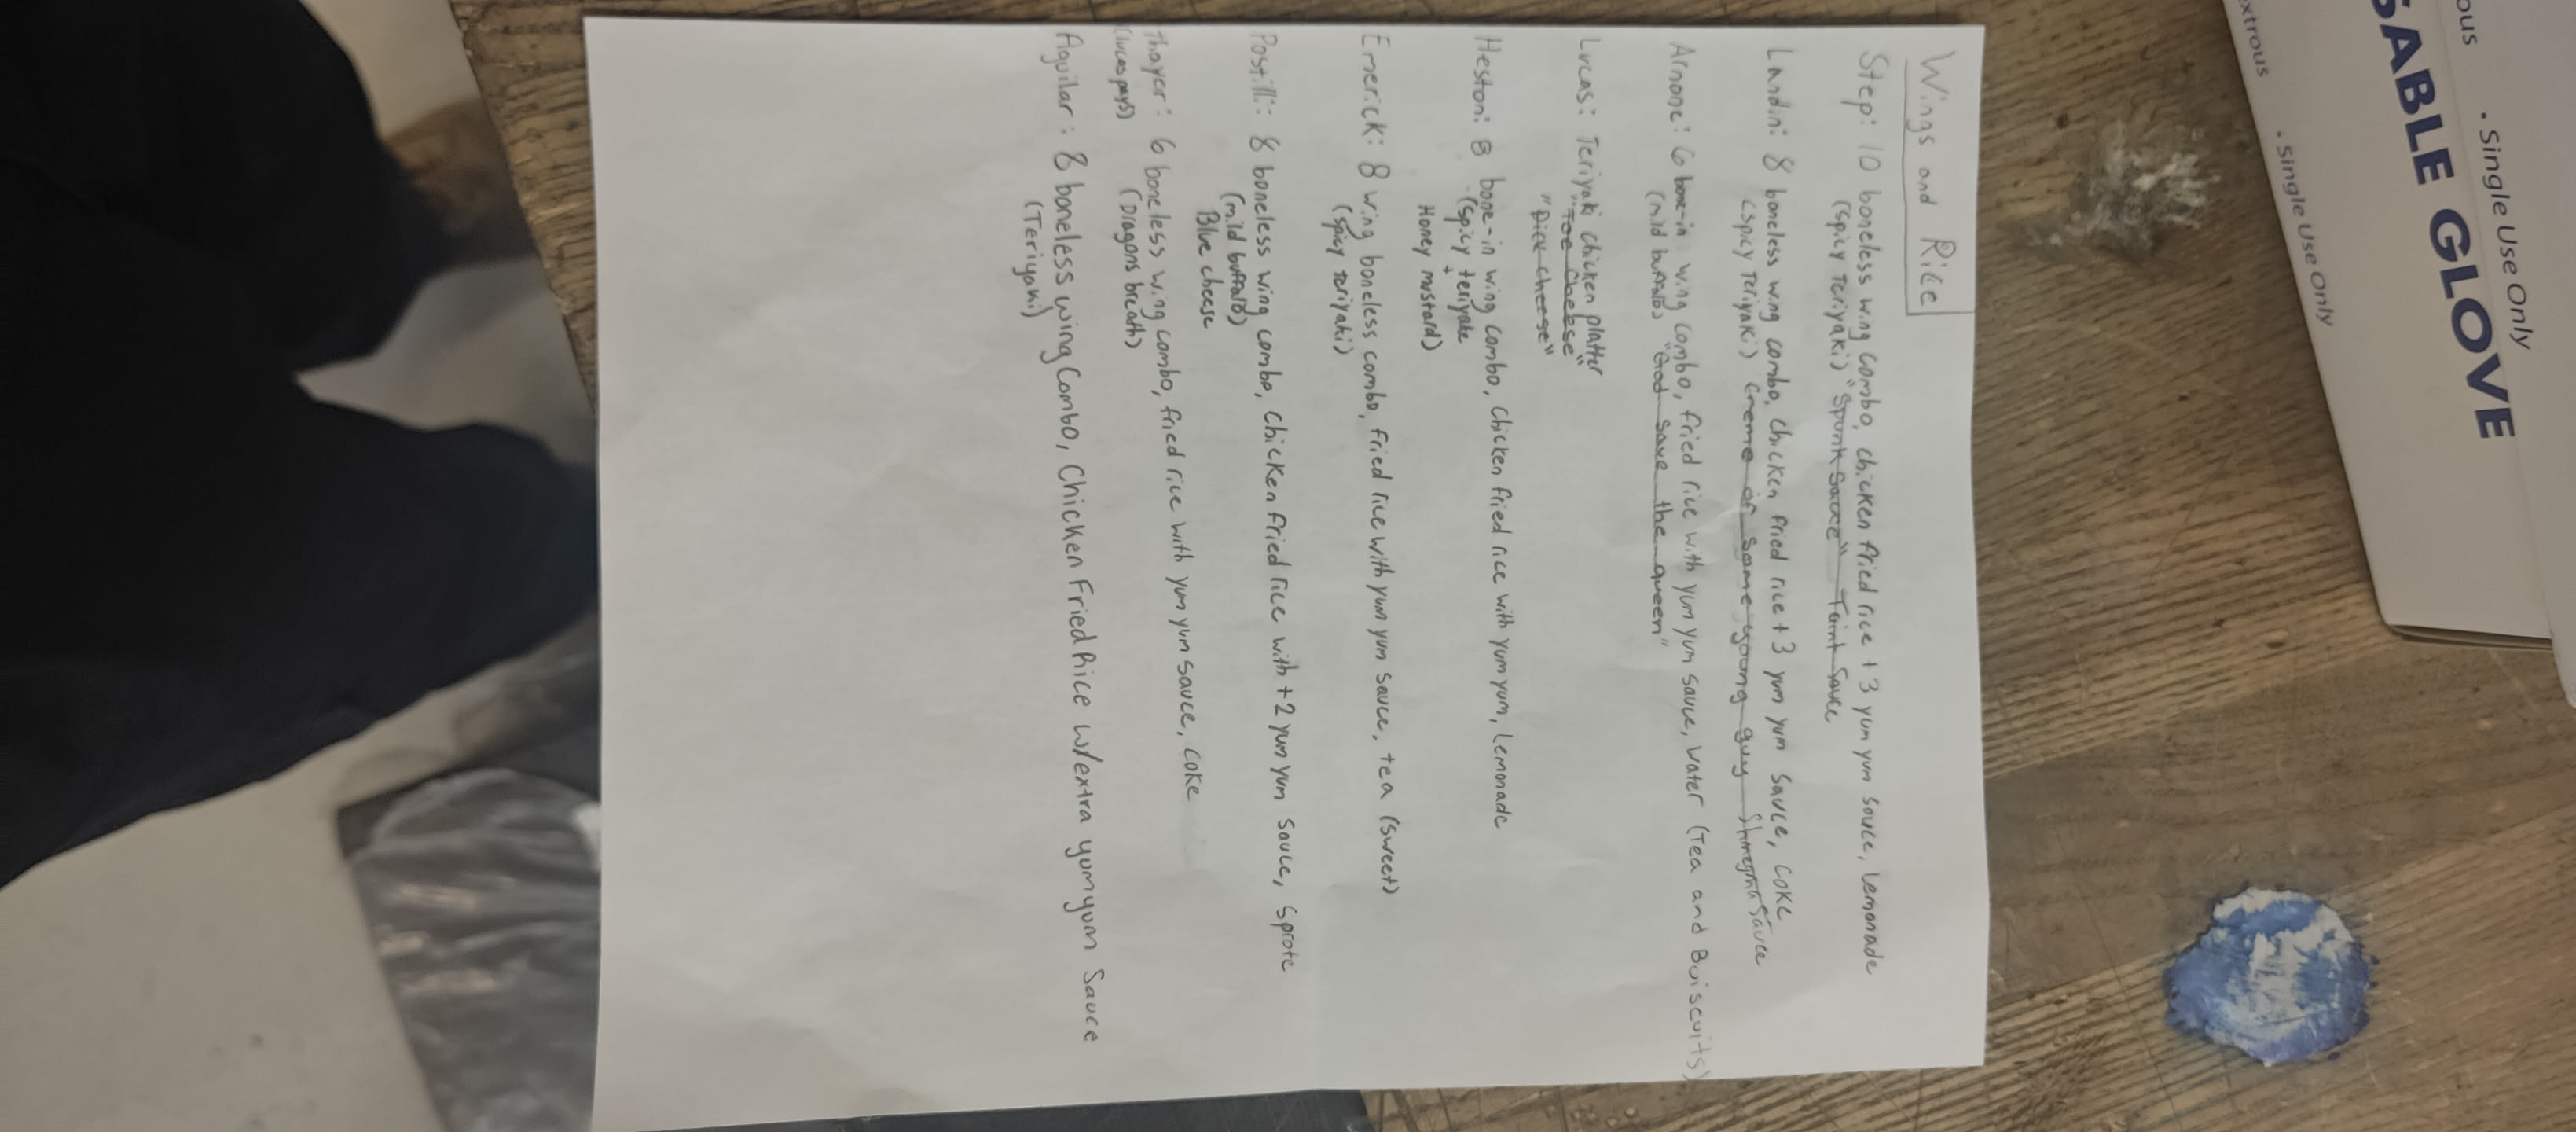 Wings and Rice
Step: 10 boneless wing combo, chicken fried rice + 3 yum yum sauce, lemonade
(spicy Teriyaki) "Spunk sauce" Taint Sauce
Landin: 8 boneless wing combo, chicken fried rice + 3 yum yum sauce, coke
(spicy Teriyaki) Creme of some young guy Shmegma Sauce
Arnone: 6 bone-in wing combo, fried rice with yum yum sauce, water (Tea and Buiscuits)
(mild buffalo) "God save the queen"
Lucas: Teriyaki chicken platter
"Toe cheese"
"Dick cheese"
Heston: 8 bone-in wing combo, chicken fried rice with yum yum, lemonade
(spicy teriyake
+
Honey mustard)
Emerick: 8 wing boneless combo, fried rice with yum yum sauce, tea (sweet)
(spicy teriyaki)
Postilli: 8 boneless wing combo, chicken fried rice with +2 yum yum sauce, sprote
(mild buffalo)
Blue cheese
Thayer: 6 boneless wing combo, fried rice with yum yum sauce, coke
(lucas pays) (Dragons breath)
Aguilar: 8 boneless wing Combo, Chicken Fried Rice w/extra yum yum Sauce
(Teriyaki)
SABLE GLOVE
ous
. Single Use Only
extrous
. Single Use Only